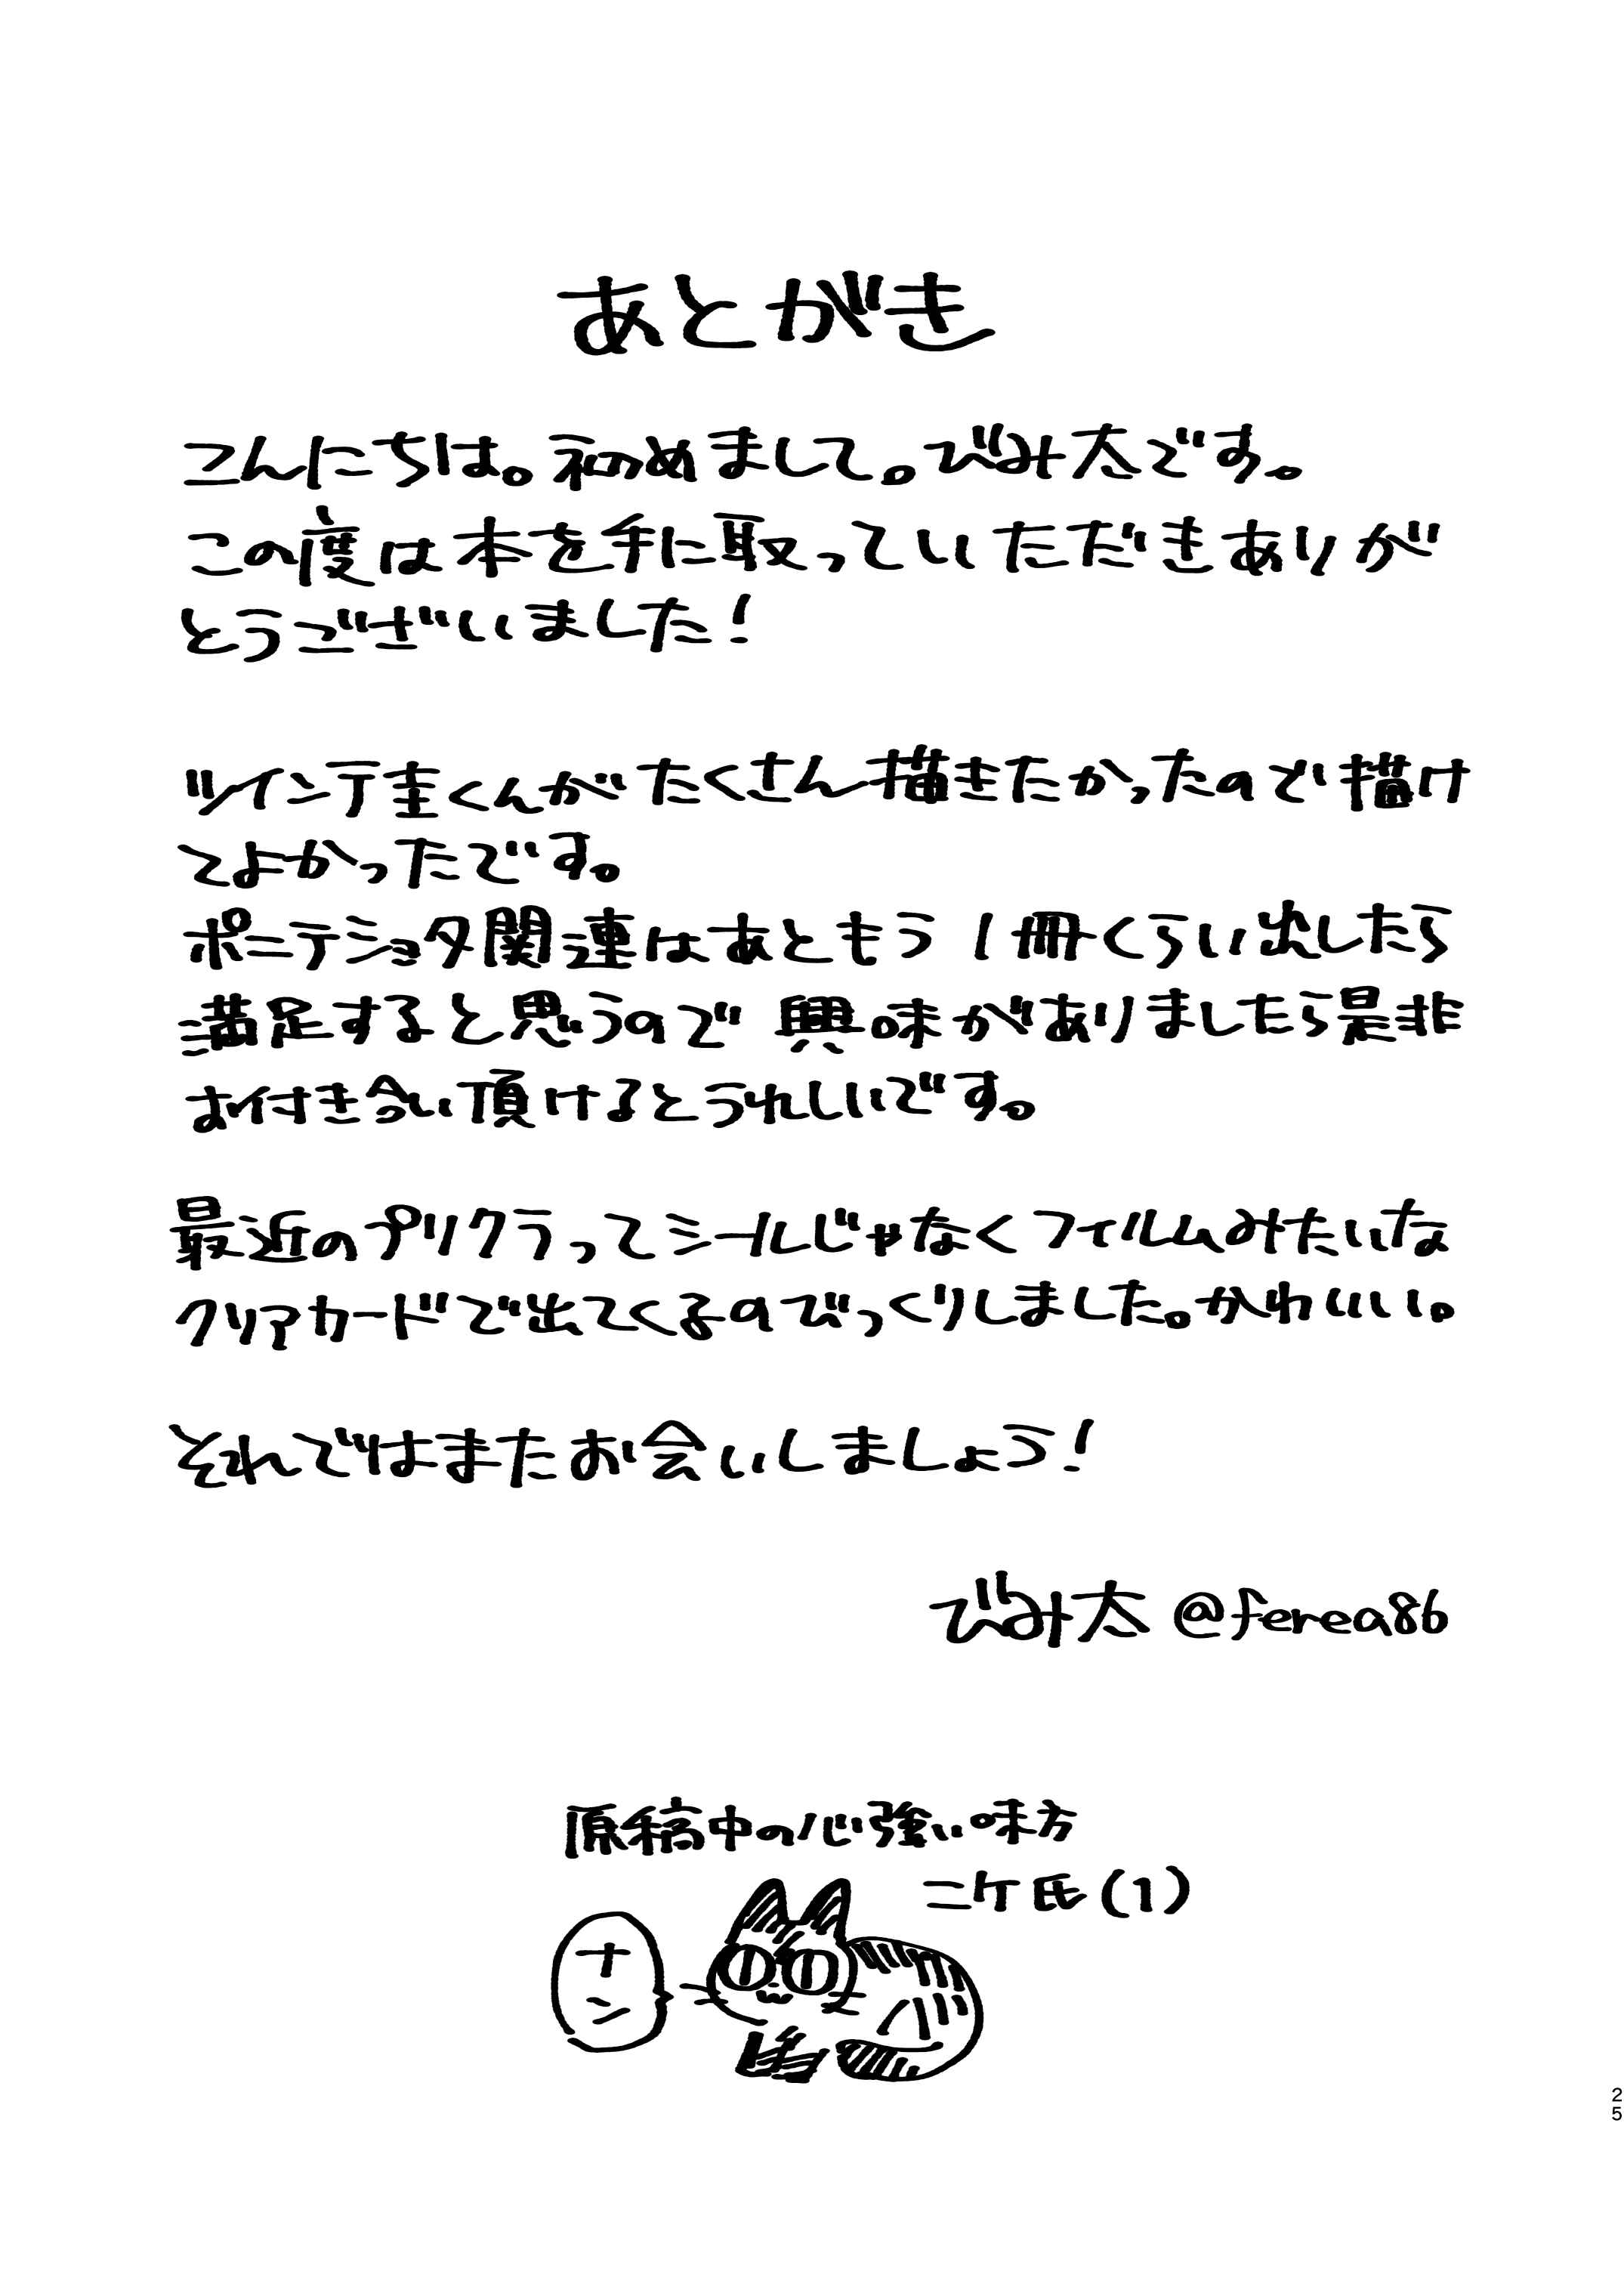 あとがき
こんにちは。初めまして。びみ太です。
この度は本を手に取っていただきありが
とうございました！
ツインテ圭くんがたくさん描きたかったので描け
てよかったです。
ポニテショタ関連はあともう1冊くらい出したら
満足すると思うので興味がありましたら是非
お付き合い頂けるとうれしいです。
最近のプリクラってシールじゃなくフィルムみたいな
クリアカードで出てくるのびっくりしました。かわいい。
それではまたお会いしましょう！
びみ太 @ferea86
原稿中の心強い味方
ニケ氏(1)
ナン
25